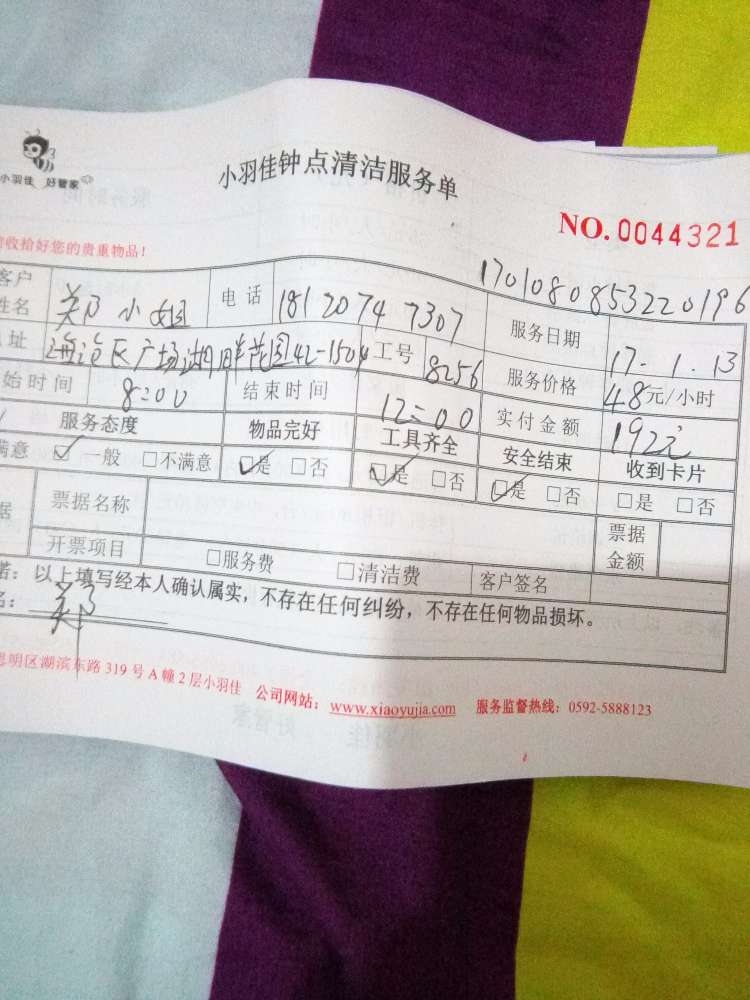 小羽佳 好管家
小羽佳钟点清洁服务单
NO. 0044321
收拾好您的贵重物品!
1701080853220196
客户姓名 郑小姐 电话 18120747307 服务日期 17-1.13
址 海沧区广场湖畔花园42-1504 工号 8256 服务价格 48元/小时
始时间 8:00 结束时间 12:00 实付金额 192元
服务态度 物品完好 工具齐全 安全结束 收到卡片
满意 ☑一般 □不满意 ☑是 □否 ☑是 □否 ☑是 □否 □是 □否
据 票据名称 票据金额
开票项目 □服务费 □清洁费 客户签名
诺:以上填写经本人确认属实,不存在任何纠纷,不存在任何物品损坏。
名: 郑
思明区湖滨东路 319 号 A 幢 2 层小羽佳 公司网站: www.xiaoyujia.com 服务监督热线: 0592-5888123